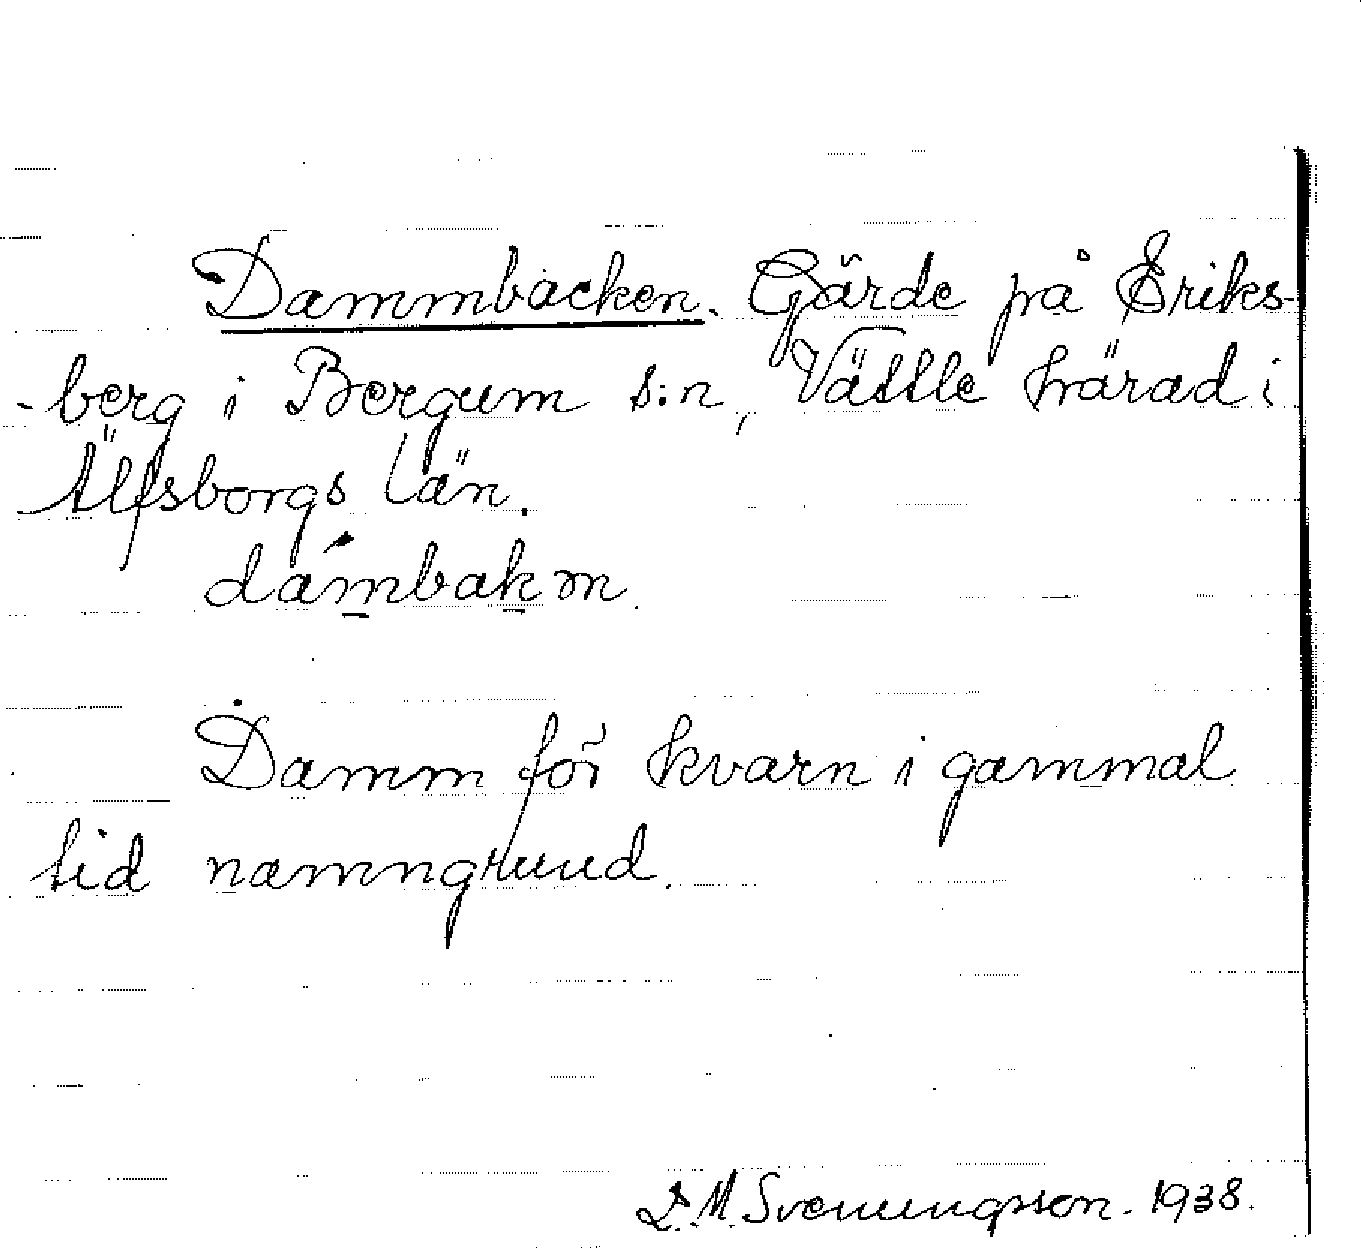 Dammbacken. Gärde på Eriks-
-berg i Bergum s:n, Vättle härad i
Älfsborgs län.
dámbakm.
Damm för kvarn i gammal
tid namngrund.
D.M. Svenungsson. 1938.